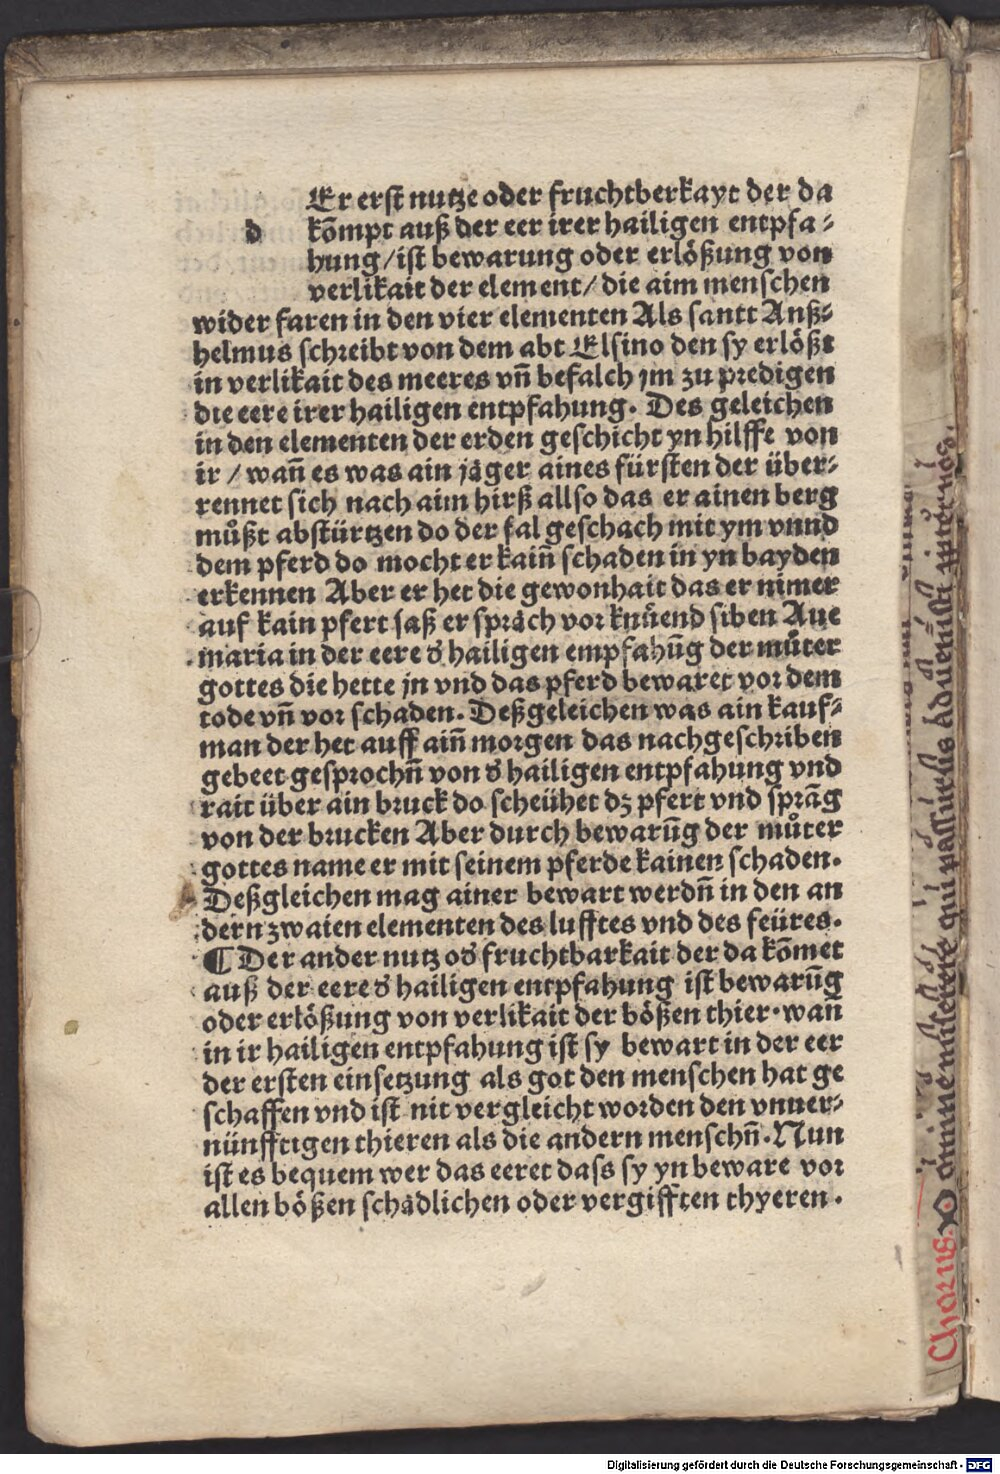 Er erst nutze oder fruchtberkayt der da
d kōmpt auß der eer irer hailigen entpfa⸗
hung/ist bewarung oder erlößung von
verlikait der element/ die aim menschen
wider faren in den vier elementen Als santt Anß⸗
helmus schreibt von dem abt Elsino den sy erlößt
in verlikait des meeres vñ befalch jm zu predigen
die eere irer hailigen entpfahung. Des geleichen
in den elementen der erden geschicht yn hilffe von
ir / wañ es was ain jäger aines fürsten der über⸗
rennet sich nach aim hirß allso das er ainen berg
můßt abstürtzen do der fal geschach mit ym vnnd
dem pferd do mocht er kaiñ schaden in yn bayden
erkennen Aber er het die gewonhait das er nimer
auf kain pfert saß er spräch vor knüend siben Aue
maria in der eere d' hailigen empfahūg der můter
gottes die hette jn vnd das pferd bewaret vor dem
tode vñ vor schaden. Deßgeleichen was ain kauf⸗
man der het auff aiñ morgen das nachgeschriben
gebeet gesprochñ von d' hailigen entpfahung vnd
rait über ain bruck do scheühet dz pfert vnd sprāg
von der brucken Aber durch bewarūg der můter
gottes name er mit seinem pferde kainen schaden.
Deßgleichen mag ainer bewart werdñ in den an
dern zwaien elementen des lufftes vnd des feüres.
¶ Der ander nutz od' fruchtbarkait der da kōmet
auß der eere d' hailigen entpfahung ist bewarūg
oder erlößung von verlikait der bößen thier. wañ
in ir hailigen entpfahung ist sy bewart in der eer
der ersten einsetzung als got den menschen hat ge
schaffen vnd ist nit vergleicht worden den vnuer⸗
nünfftigen thieren als die andern menschñ. Nun
ist es bequem wer das eeret dass sy yn beware vor
allen bößen schädlichen oder vergifften thyeren.
Chorus. Domine miserere qui passurus aduenisti propter nos.
Digitalisierung gefördert durch die Deutsche Forschungsgemeinschaft - DFG